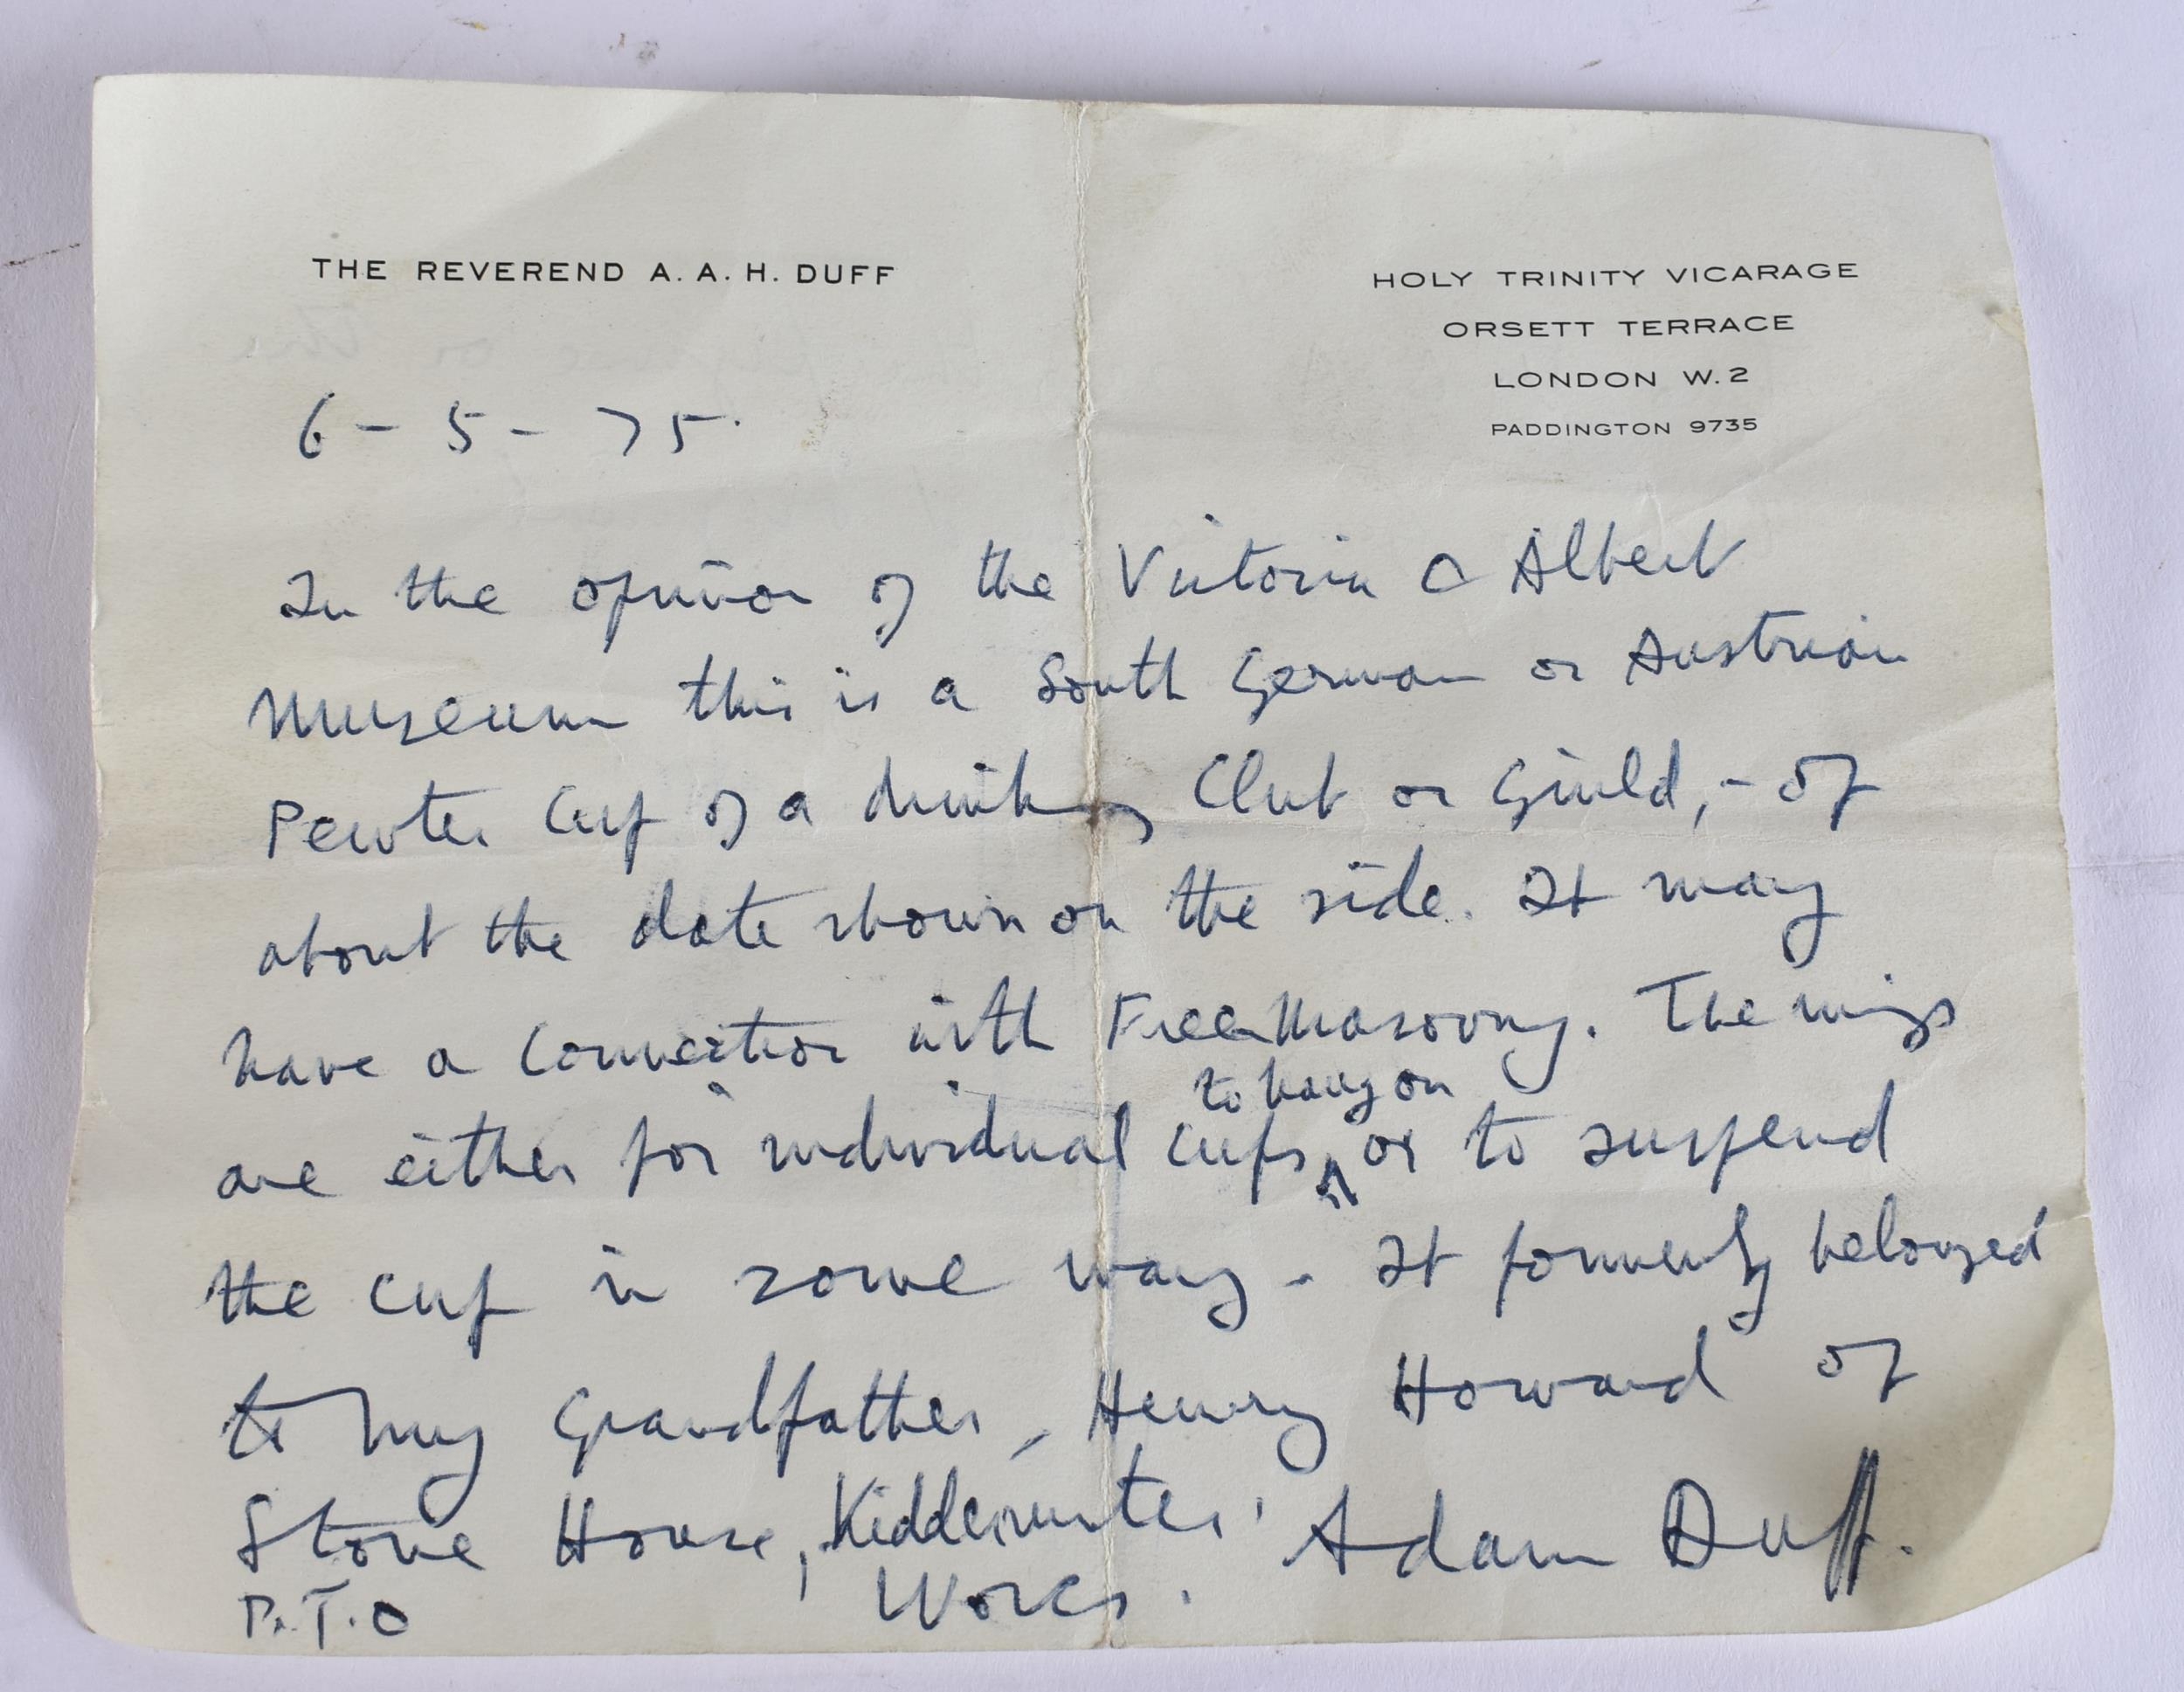 THE REVEREND A. A. H. DUFF
HOLY TRINITY VICARAGE
ORSETT TERRACE
LONDON W. 2
PADDINGTON 9735
6 - 5 - 75.
In the opinion of the Victoria & Albert
Museum this is a South German or Austrian
Pewter Cup of a drinking Club or Guild, - of
about the date shown on the side. It may
have a connection with FreeMasonry. The rings
to hang on
are either for individual cups, or to suspend
the cup in some way - It formerly belonged
to my Grandfather, Henry Howard of
Stone House, Kidderminster. Adam Duff.
P.T.O Worcs.